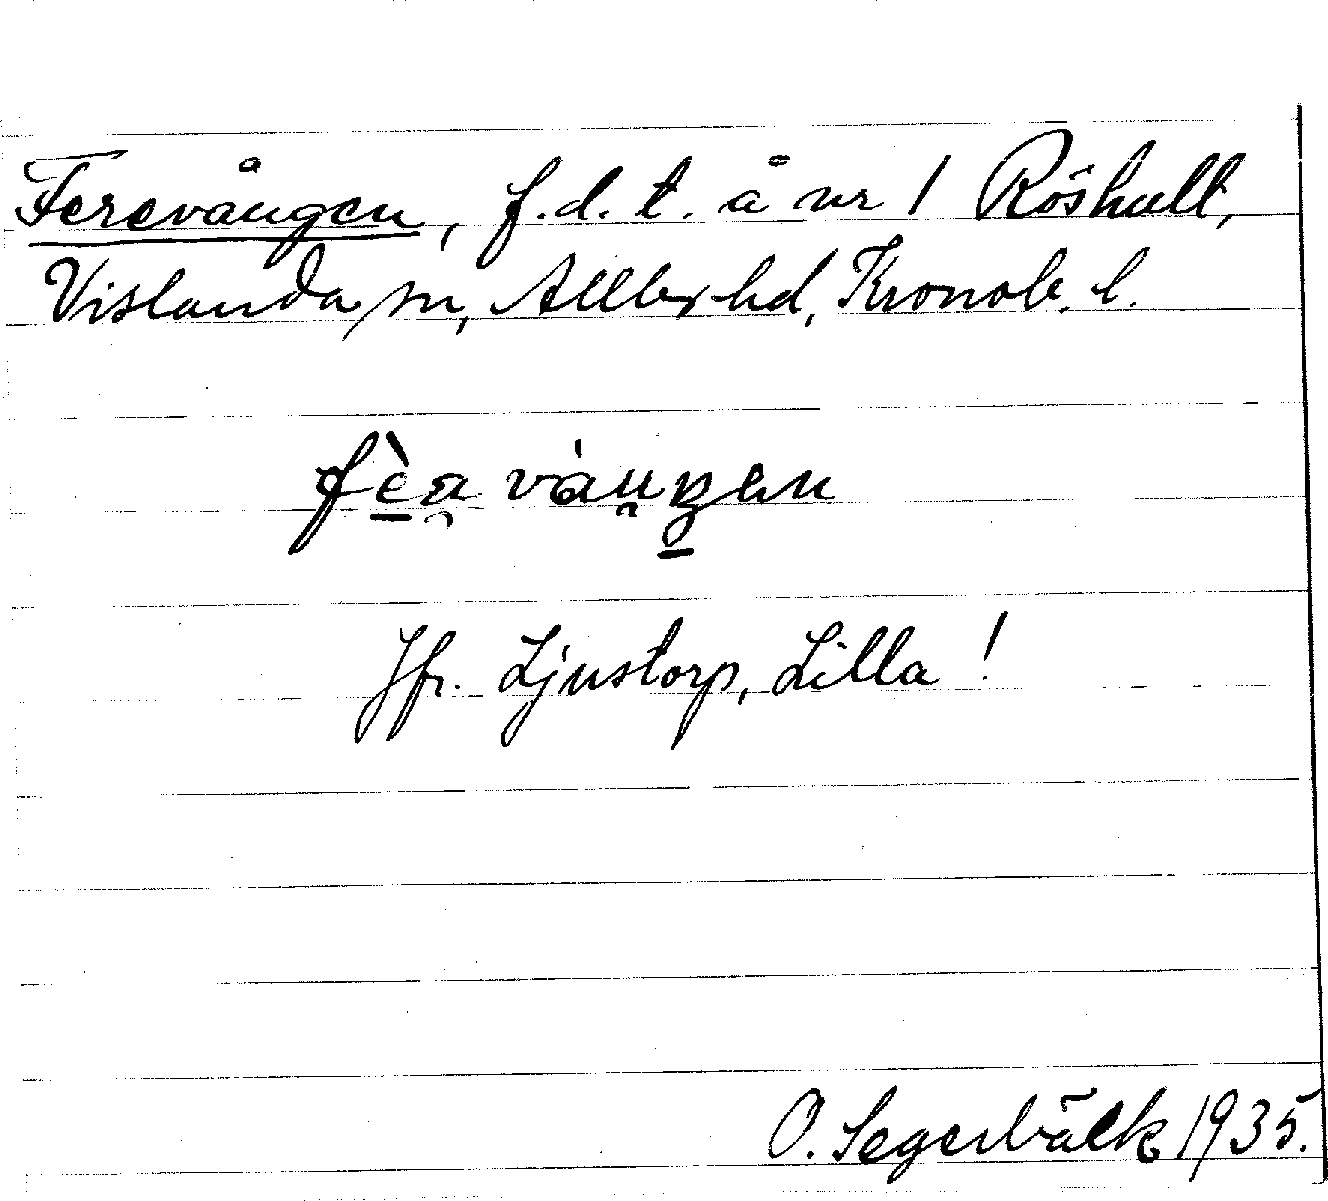 Ferevången, f.d.t. å nr 1 Röshult,
Vislanda sn, Allbo hd, Kronob. l.
Jfr. Ljustorp, Lilla!
O. Segerbäck 1935.